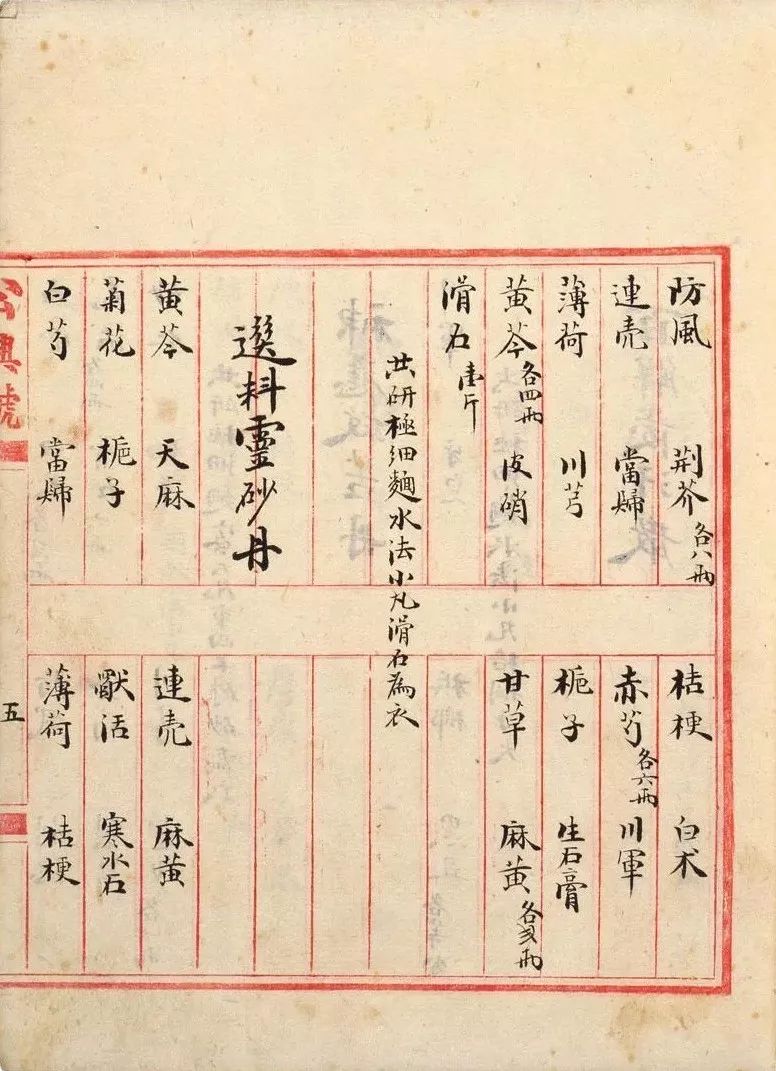 防風 荊芥各八兩 桔梗 白术
連壳 當歸 赤芍各六兩 川軍
薄荷 川芎 梔子 生石膏
黃芩各四兩 皮硝 甘草 麻黃
滑石壹斤
共研極細麵水法小丸滑石為衣
選料靈砂丹
黃芩 天麻 連壳 麻黃
菊花 梔子 寒水石
白芍 當歸 薄荷 桔梗
興號
五